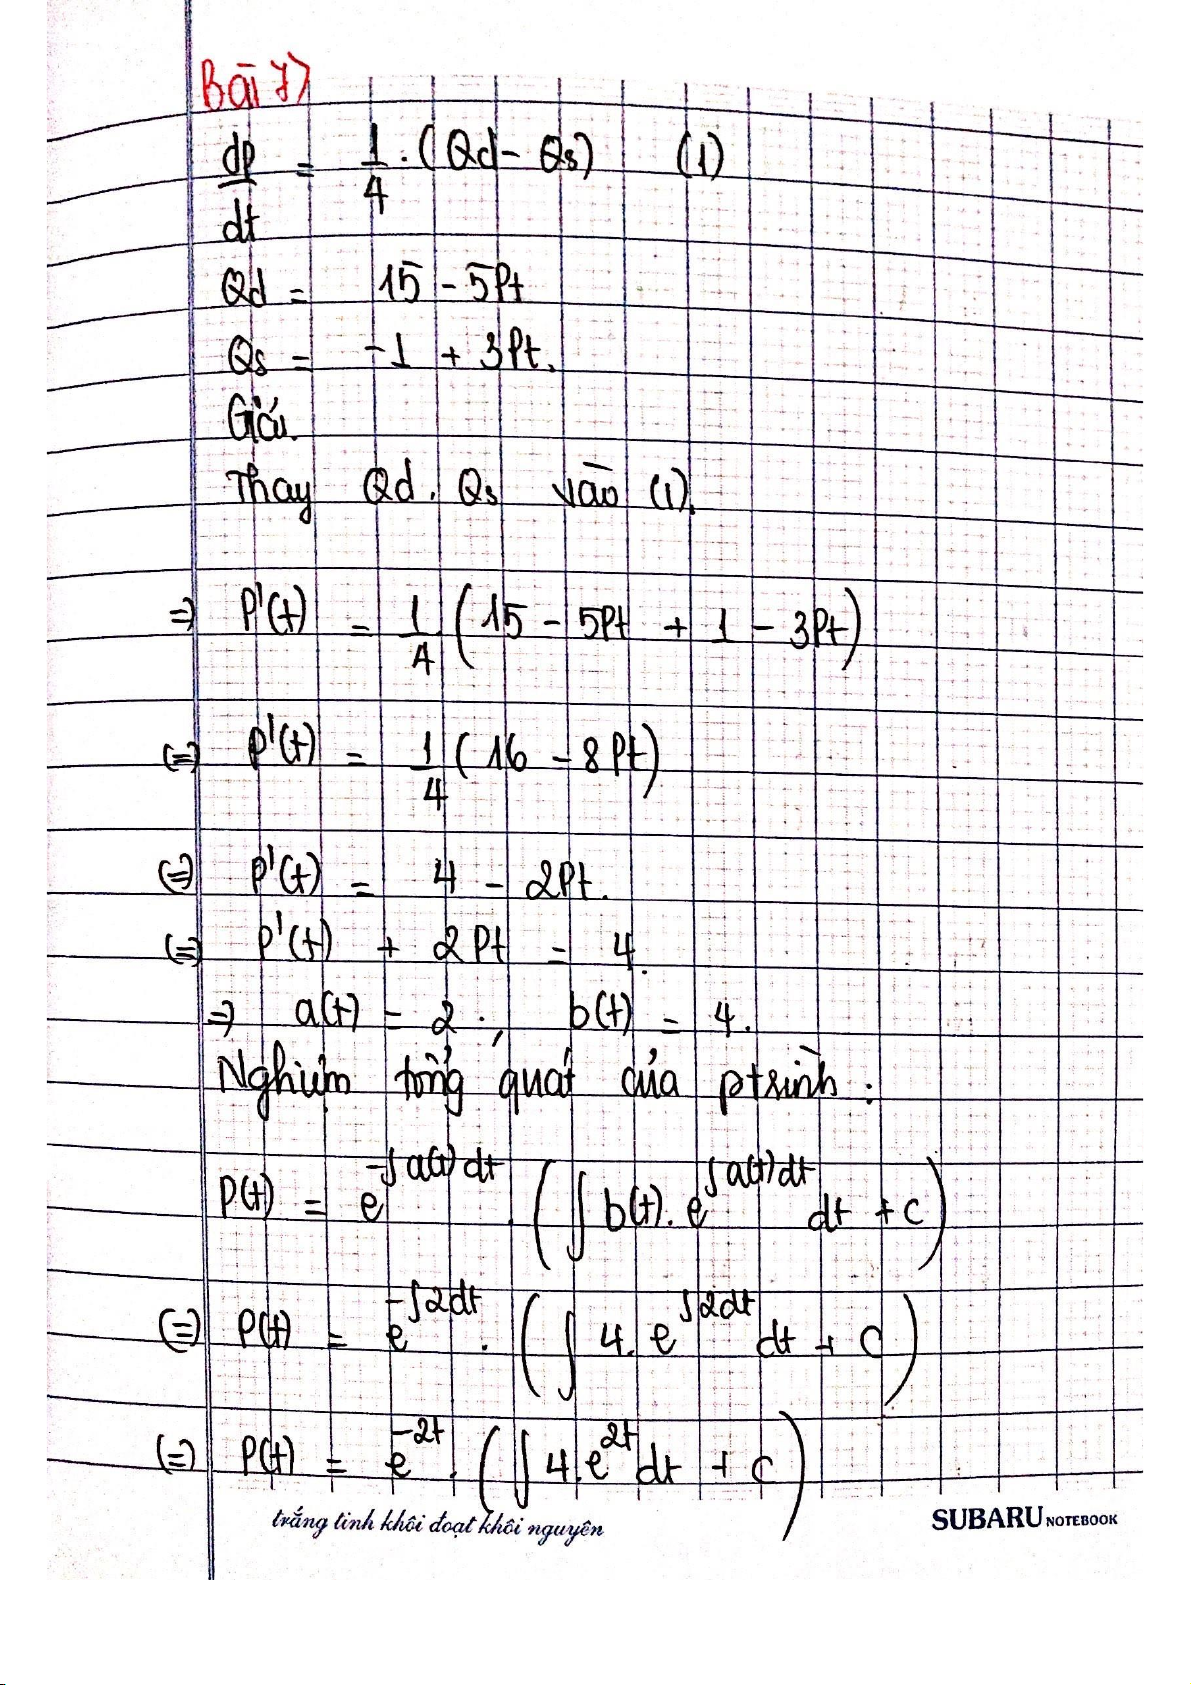 Bài 7)
dp/dt = 1/4 . (Qd - Qs) (1)
Qd = 15 - 5Pt
Qs = -1 + 3Pt.
Giải.
Thay Qd, Qs vào (1).
=> P'(t) = 1/4 (15 - 5Pt + 1 - 3Pt)
(=) P'(t) = 1/4 (16 - 8Pt)
(=) P'(t) = 4 - 2Pt.
(=) P'(t) + 2Pt = 4.
=> a(t) = 2 ; b(t) = 4.
Nghiệm tổng quát của ptrình :
P(t) = e^(-∫a(t)dt) . (∫ b(t). e^(∫a(t)dt) dt + c)
(=) P(t) = e^(-∫2dt) . (∫ 4. e^(∫2dt) dt + C)
(=) P(t) = e^(-2t) . (∫ 4.e^(2t) dt + C)
trắng tinh khôi đoạt khôi nguyên SUBARU NOTEBOOK